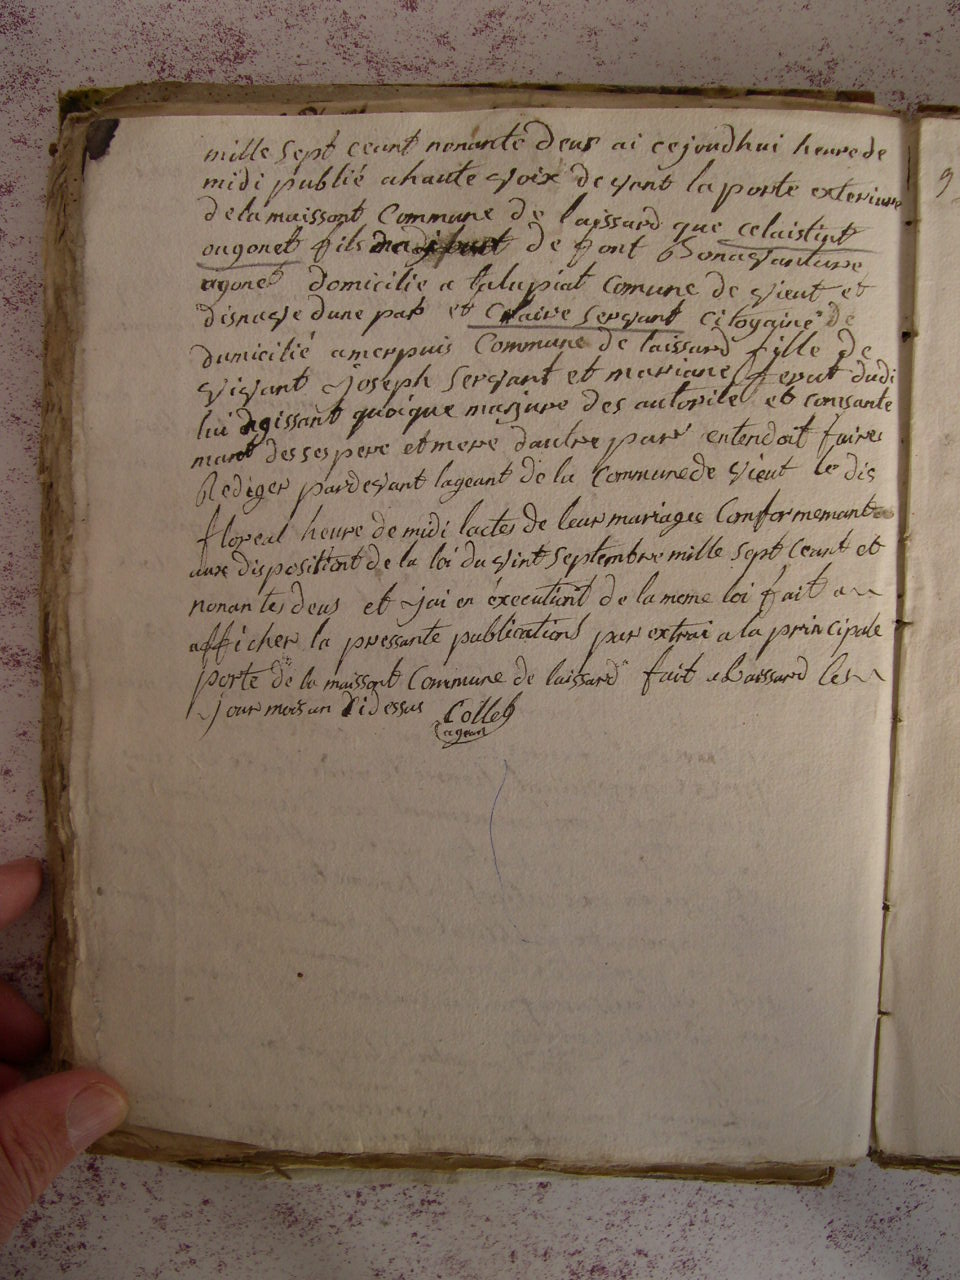 mille sept ceant nonante deus ai cejourdhui heure de
midi publié ahaute voix devent la porte exteriure
de la maissont Commune de laissard que celaistint
ougonet fils de font Bonavanture
agonet domicilie a comune de vieut et
disnave dune part et Claire Servant citoyaine de
dumicilié amerpuis Commune de laissard fille de
vivant joseph Servant et mariane
lui quoique marjure des autorite et consante
mant desses pere et mere dautre parr entendoit faires
Rediger pardevant lageant de la Commune de vieut le dis
floreal heure de midi lactes de leur mariages Conformemant
aux dispositiont de la loi du vint septembre mille sept ceant et
nonantes deus et jai en éxecutiont de la meme loi fait a
afficher la pressante publications par extrai a la principale
porte de la maissont Commune de laissard fait a Laissard les
jour mois an sidessus Collet
agean
9